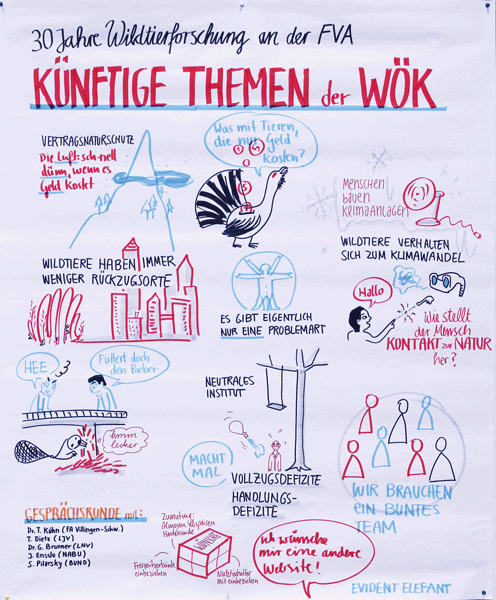 30 Jahre Wildtierforschung an der FVA
KÜNFTIGE THEMEN der WÖK
VERTRAGSNATURSCHUTZ
Die Luft: schnell
dünn, wenn es
Geld kostet
Was mit Tieren,
die nur Geld
kosten?
Menschen
bauen
Klimaanlagen
WILDTIERE VERHALTEN
SICH ZUM KLIMAWANDEL
WILDTIERE HABEN IMMER
WENIGER RÜCKZUGSORTE
ES GIBT EIGENTLICH
NUR EINE PROBLEMART
Hallo
Wie stellt
der Mensch
KONTAKT zur NATUR
her?
HEE
Füttert doch
den Bieber
hmm
lecker
NEUTRALES
INSTITUT
MACHT
MAL
VOLLZUGSDEFIZITE
HANDLUNGS-
DEFIZITE
WIR BRAUCHEN
EIN BUNTES
TEAM
GESPRÄCHSRUNDE mit:
Dr. T. Kühn (FA Villingen-Schw.)
T. Dietz (LJV)
Dr. G. Bronner (LNV)
J. Enssle (NABU)
S. Pilarsky (BUND)
Zumutung:
Hunderunde
WÜNSCHE
einbeziehen
miteinbeziehen
Ich wünsche
mir eine andere
Website!
EVIDENT ELEFANT